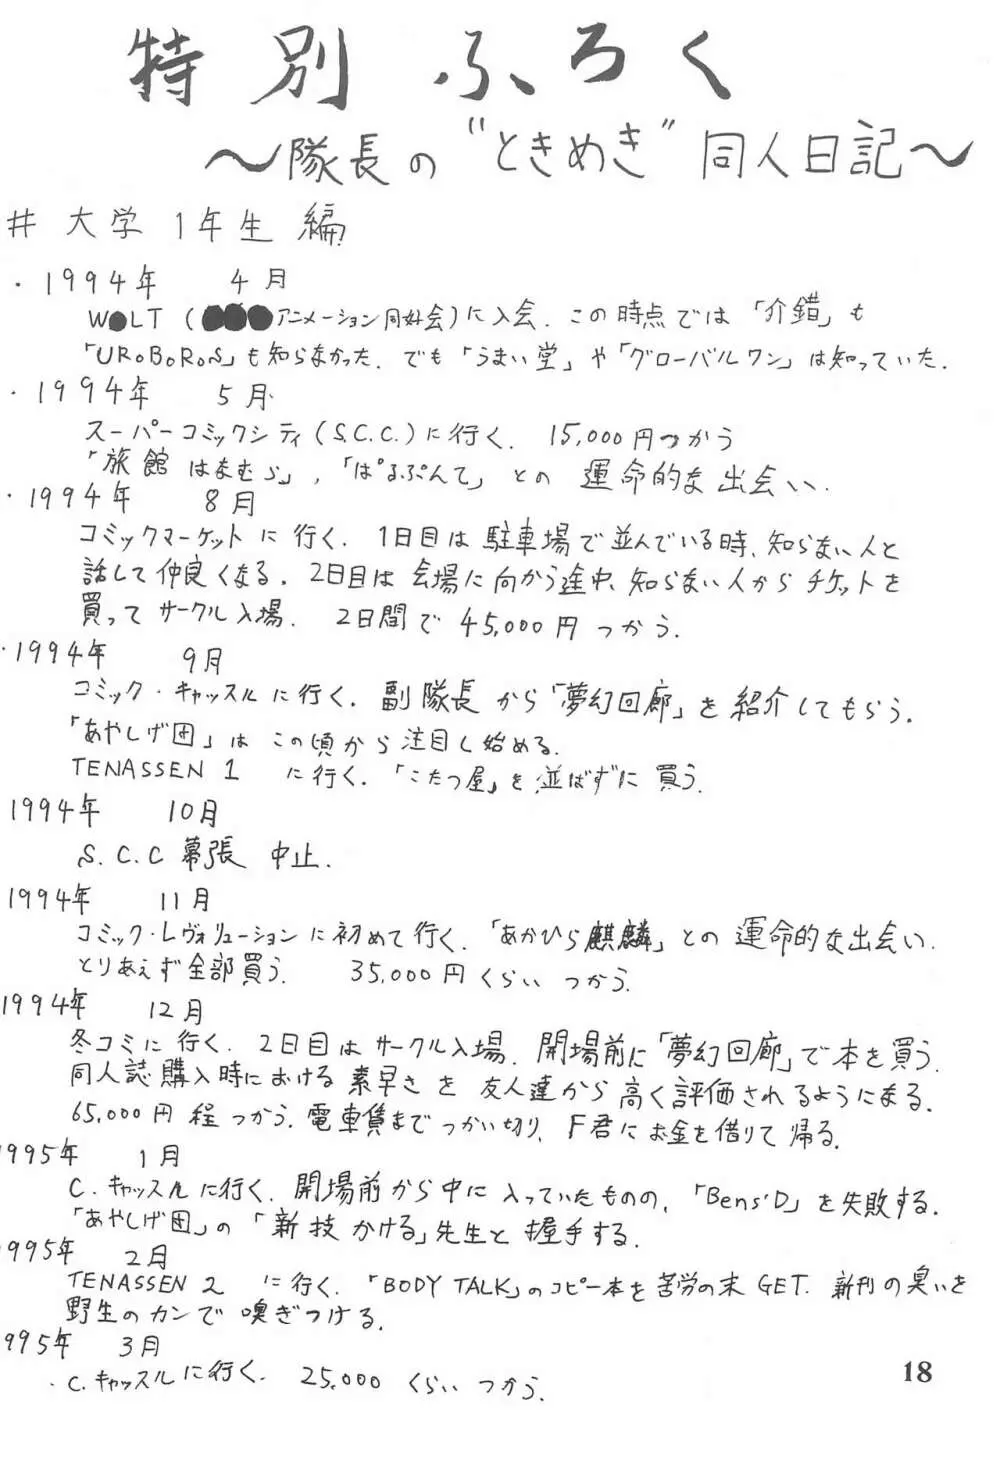 特別ふろく
～隊長の“ときめき”同人日記～
# 大学1年生編
・1994年 4月
W●LT (●●●アニメーション同好会)に入会. この時点では「介錯」も
「UROBOROS」も知らなかった. でも「うまい堂」や「グローバルワン」は知っていた.
・1994年 5月
スーパーコミックシティ(S.C.C.)に行く. 15,000円つかう
「旅館はなむら」,「ぱるぷんて」との運命的な出会い.
・1994年 8月
コミックマーケットに行く. 1日目は駐車場で並んでいる時、知らない人と
話して仲良くなる. 2日目は会場に向かう途中、知らない人からチケットを
買ってサークル入場. 2日間で45,000円つかう.
・1994年 9月
コミック・キャッスルに行く. 副隊長から「夢幻回廊」を紹介してもらう.
「あやしげ団」はこの頃から注目し始める.
TENASSEN 1 に行く.「こたつ屋」を並ばずに買う.
1994年 10月
S.C.C 幕張 中止.
1994年 11月
コミック・レヴォリューションに初めて行く.「あかひら麒麟」との運命的な出会い.
とりあえず全部買う. 35,000円くらいつかう.
1994年 12月
冬コミに行く. 2日目はサークル入場. 開場前に「夢幻回廊」で本を買う.
同人誌購入時における素早さを友人達から高く評価されるようになる.
65,000円程つかう. 電車賃までつかい切り、F君にお金を借りて帰る.
1995年 1月
C.キャッスルに行く. 開場前から中に入っていたものの、「Bens'D」を失敗する.
「あやしげ団」の「新技かける」先生と握手する.
1995年 2月
TENASSEN 2 に行く.「BODY TALK」のコピー本を苦労の末GET. 新刊の臭いを
野生のカンで嗅ぎつける.
995年 3月
・C.キャッスルに行く. 25,000くらいつかう.
18